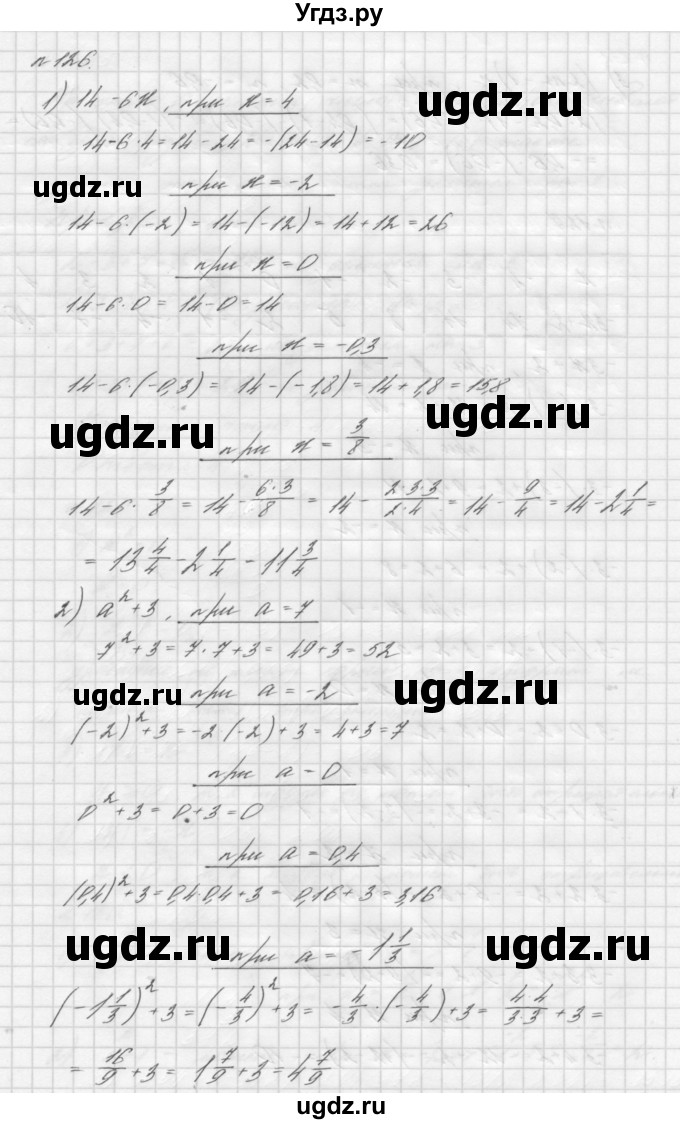 Угдз.ру
№126.
1) 14 - 6x, при x = 4
14 - 6·4 = 14 - 24 = -(24 - 14) = -10
ugdz.ru
ugdz.ru
при x = -2
14 - 6·(-2) = 14 - (-12) = 14 + 12 = 26
при x = 0
14 - 6·0 = 14 - 0 = 14
при x = -0,3
14 - 6·(-0,3) = 14 - (-1,8) = 14 + 1,8 = 15,8
ugdz.ru
ugdz.ru
при x = 3/8
14 - 6·3/8 = 14 - 6·3/8 = 14 - 2·3·3/2·4 = 14 - 9/4 = 14 - 2 1/4 =
= 13 4/4 - 2 1/4 - 11 3/4
2) a² + 3, при a = 7
7² + 3 = 7·7 + 3 = 49 + 3 = 52
ugdz.ru
ugdz.ru
при a = -2
(-2)² + 3 = -2·(-2) + 3 = 4 + 3 = 7
при a = 0
0² + 3 = 0 + 3 = 0
при a = 0,4
(0,4)² + 3 = 0,4·0,4 + 3 = 0,16 + 3 = 3,16
ugdz.ru
ugdz.ru
при a = -1 1/3
(-1 1/3)² + 3 = (-4/3)² + 3 = -4/3·(-4/3) + 3 = 4·4/3·3 + 3 =
= 16/9 + 3 = 1 7/9 + 3 = 4 7/9
ugdz.ru